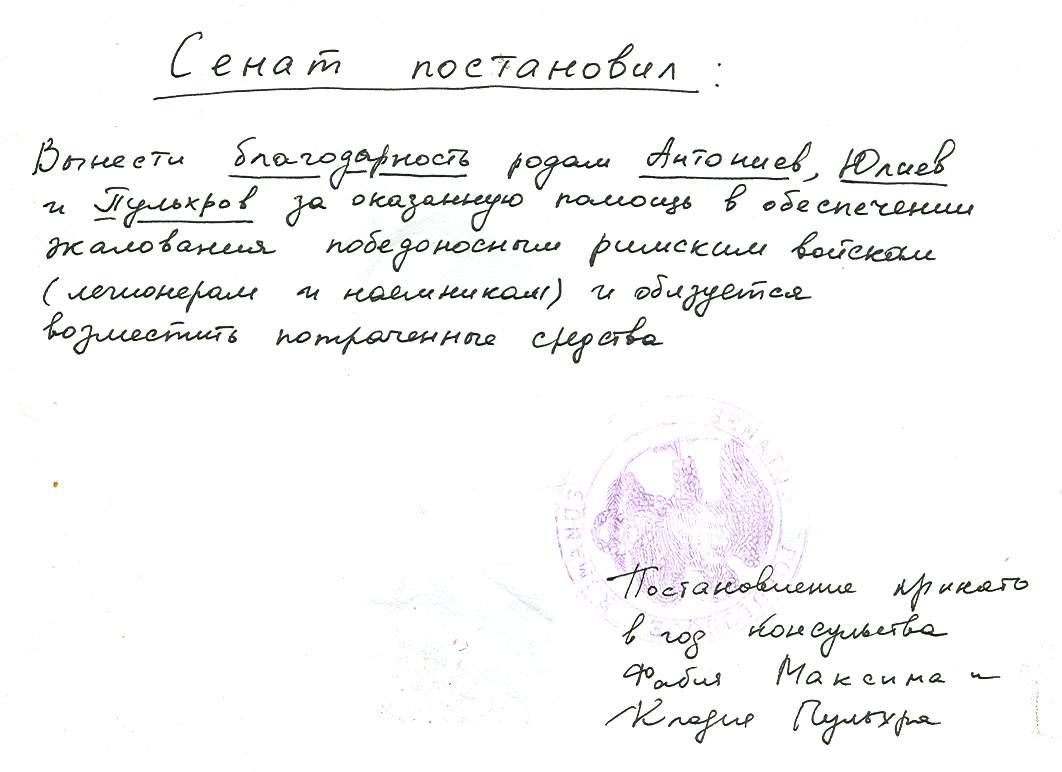 Сенат постановил:
Вынести благодарность родам Антониев, Юлиев
и Пульхров за оказанную помощь в обеспечении
жалования победоносным римским войскам
(легионерам и наемникам) и обязуется
возместить потраченные средства
SENATUS
ROMANUS
Постановление принято
в год консульства
Фабия Максима и
Клавдия Пульхра